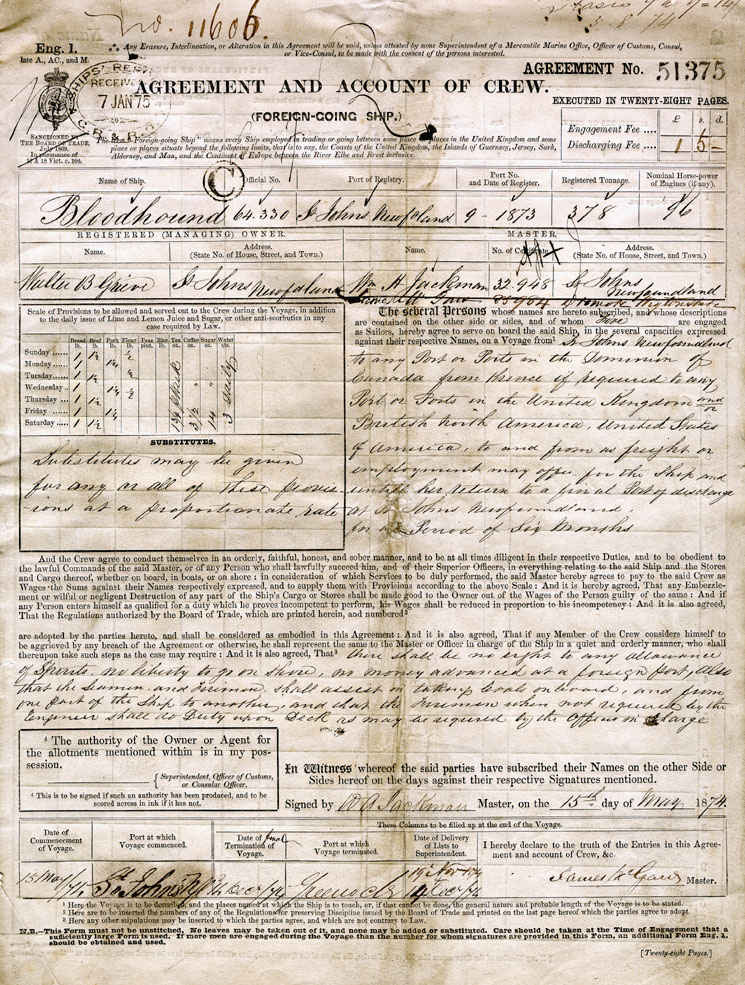 No. 11606
3.8.74
Eng. 1.
late A., AC., and M.
Any Erasure, Interlineation, or Alteration in this Agreement will be void, unless attested by some Superintendent of a Mercantile Marine Office, Officer of Customs, Consul,
or Vice-Consul, to be made with the consent of the persons interested.
AGREEMENT No. 51375
SHIPS' REG
RECEIVED
7 JAN 75
AGREEMENT AND ACCOUNT OF CREW.
(FOREIGN-GOING SHIP.)
EXECUTED IN TWENTY-EIGHT PAGES.
£ s. d.
Engagement Fee ....
Discharging Fee .... 1 5 -
SANCTIONED BY
THE BOARD OF TRADE,
July 1869.
In pursuance of
17 & 18 Vict. c. 104.
The Term "Foreign-going Ship" means every Ship employed in trading or going between some place or places in the United Kingdom and some
place or places situate beyond the following limits, that is to say, the Coasts of the United Kingdom, the Islands of Guernsey, Jersey, Sark,
Alderney, and Man, and the Continent of Europe between the River Elbe and Brest inclusive.
C
Name of Ship. Official No. Port of Registry. Port No. and Date of Register. Registered Tonnage. Nominal Horse-power of Engines (if any).
Bloodhound 64.330 St Johns Newfoland 9 - 1873 378 96
REGISTERED (MANAGING) OWNER. MASTER.
Name. Address. (State No. of House, Street, and Town.) Name. No. of Certificate. Address. (State No. of House, Street, and Town.)
Walter B Grieve St Johns Newfoland Wm H Jackman 32.948 St Johns Newfoundland
Scale of Provisions to be allowed and served out to the Crew during the Voyage, in addition
to the daily issue of Lime and Lemon Juice and Sugar, or other anti-scorbutics in any
case required by Law.
Bread lb. Beef lb. Pork lb. Flour lb. Peas pint. Rice lb. Tea oz. Coffee oz. Sugar oz. Water qts.
Sunday ..... 1 1½ ½
Monday ..... 1 1¼
Tuesday ..... 1 1½ ½
Wednesday ..... 1 1¼
Thursday ..... 1 1½ ½
Friday ..... 1 1¼
Saturday ..... 1 1½
SUBSTITUTES.
Substitutes may be given
for any or all of these provis-
ions at a proportionate rate
The several Persons whose names are hereto subscribed, and whose descriptions
are contained on the other side or sides, and of whom are engaged
as Sailors, hereby agree to serve on board the said Ship, in the several capacities expressed
against their respective Names, on a Voyage from¹ St Johns Newfoundland
to any Port or Ports in the Dominion of
Canada from thence if required to any
Port or Ports in the United Kingdom and/or
British North America, United States
of America, to and from as freight or
employment may offer for the Ship and
until her return to a final Port of discharge
at St Johns Newfoundland,
for a Period of Six Months
And the Crew agree to conduct themselves in an orderly, faithful, honest, and sober manner, and to be at all times diligent in their respective Duties, and to be obedient to
the lawful Commands of the said Master, or of any Person who shall lawfully succeed him, and of their Superior Officers, in everything relating to the said Ship and the Stores
and Cargo thereof, whether on board, in boats, or on shore: in consideration of which Services to be duly performed, the said Master hereby agrees to pay to the said Crew as
Wages the Sums against their Names respectively expressed, and to supply them with Provisions according to the above Scale: And it is hereby agreed, That any Embezzle-
ment or wilful or negligent Destruction of any part of the Ship's Cargo or Stores shall be made good to the Owner out of the Wages of the Person guilty of the same: And if
any Person enters himself as qualified for a duty which he proves incompetent to perform, his Wages shall be reduced in proportion to his incompetency: And it is also agreed,
That the Regulations authorized by the Board of Trade, which are printed herein, and numbered²
are adopted by the parties hereto, and shall be considered as embodied in this Agreement: And it is also agreed, That if any Member of the Crew considers himself to
be aggrieved by any breach of the Agreement or otherwise, he shall represent the same to the Master or Officer in charge of the Ship in a quiet and orderly manner, who shall
thereupon take such steps as the case may require: And it is also agreed, That³ there shall be no right to any allowance
of Spirits. no liberty to go on Shore, no money advanced at a foreign port, Also
that the Seamen and firemen, shall assist in taking Coals on board, and from
one part of the Ship to another, and that the firemen when not required by the
Engineer shall do Duty upon Deck as may be required by the Officer in Charge
⁴ The authority of the Owner or Agent for
the allotments mentioned within is in my pos-
session.
Superintendent, Officer of Customs,
or Consular Officer.
⁴ This is to be signed if such an authority has been produced, and to be
scored across in ink if it has not.
In Witness whereof the said parties have subscribed their Names on the other Side or
Sides hereof on the days against their respective Signatures mentioned.
Signed by W H Jackman Master, on the 15th day of May 1874.
These Columns to be filled up at the end of the Voyage.
Date of Commencement of Voyage. Port at which Voyage commenced. Date of final Termination of Voyage. Port at which Voyage terminated. Date of Delivery of Lists to Superintendent. I hereby declare to the truth of the Entries in this Agree-
ment and account of Crew, &c.
15 May/74 St Johns Greenock 19 Nov 1874 Master.
¹ Here the Voyage is to be described, and the places named at which the Ship is to touch, or, if that cannot be done, the general nature and probable length of the Voyage is to be stated.
² Here are to be inserted the numbers of any of the Regulations for preserving Discipline issued by the Board of Trade and printed on the last page hereof which the parties agree to adopt.
³ Here any other stipulations may be inserted to which the parties agree, and which are not contrary to Law.
N.B.—This Form must not be unstitched. No leaves may be taken out of it, and none may be added or substituted. Care should be taken at the Time of Engagement that a
sufficiently large Form is used. If more men are engaged during the Voyage than the number for whom signatures are provided in this Form, an additional Form Eng. 1.
should be obtained and used.
[Twenty-eight Pages.]